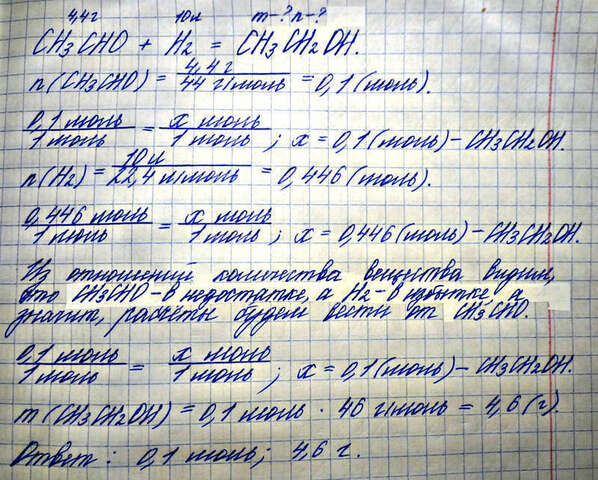 4,4г 10л m-? n-?
CH3CHO + H2 = CH3CH2OH.
n(CH3CHO) = 4,4г / 44 г/моль = 0,1 (моль).
0,1 моль / 1 моль = x моль / 1 моль ; x = 0,1 (моль) – CH3CH2OH.
n(H2) = 10л / 22,4 л/моль = 0,446 (моль).
0,446 моль / 1 моль = x моль / 1 моль ; x = 0,446 (моль) – CH3CH2OH.
Из отношений количества вещества видим,
что CH3CHO – в недостатке, а H2 – в избытке, а
значит, расчёты будем вести от CH3CHO.
0,1 моль / 1 моль = x моль / 1 моль ; x = 0,1 (моль) – CH3CH2OH.
m(CH3CH2OH) = 0,1 моль · 46 г/моль = 4,6 (г).
Ответ: 0,1 моль; 4,6 г.